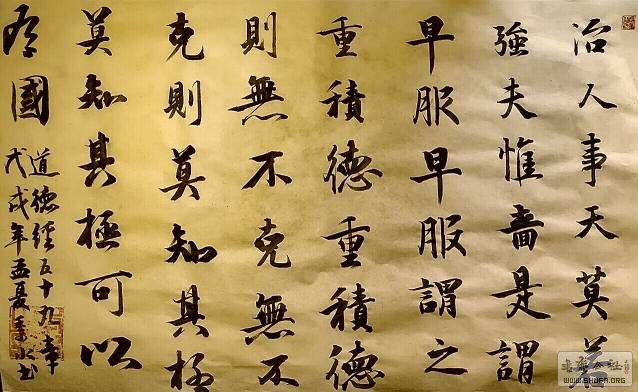 治人事天莫若
強夫惟嗇是謂
早服早服謂之
重積德重積德
則無不克無不
克則莫知其極
莫知其極可以
有國
道德經五十九章
戊戌年孟夏
WWW.SHUFA.ORG